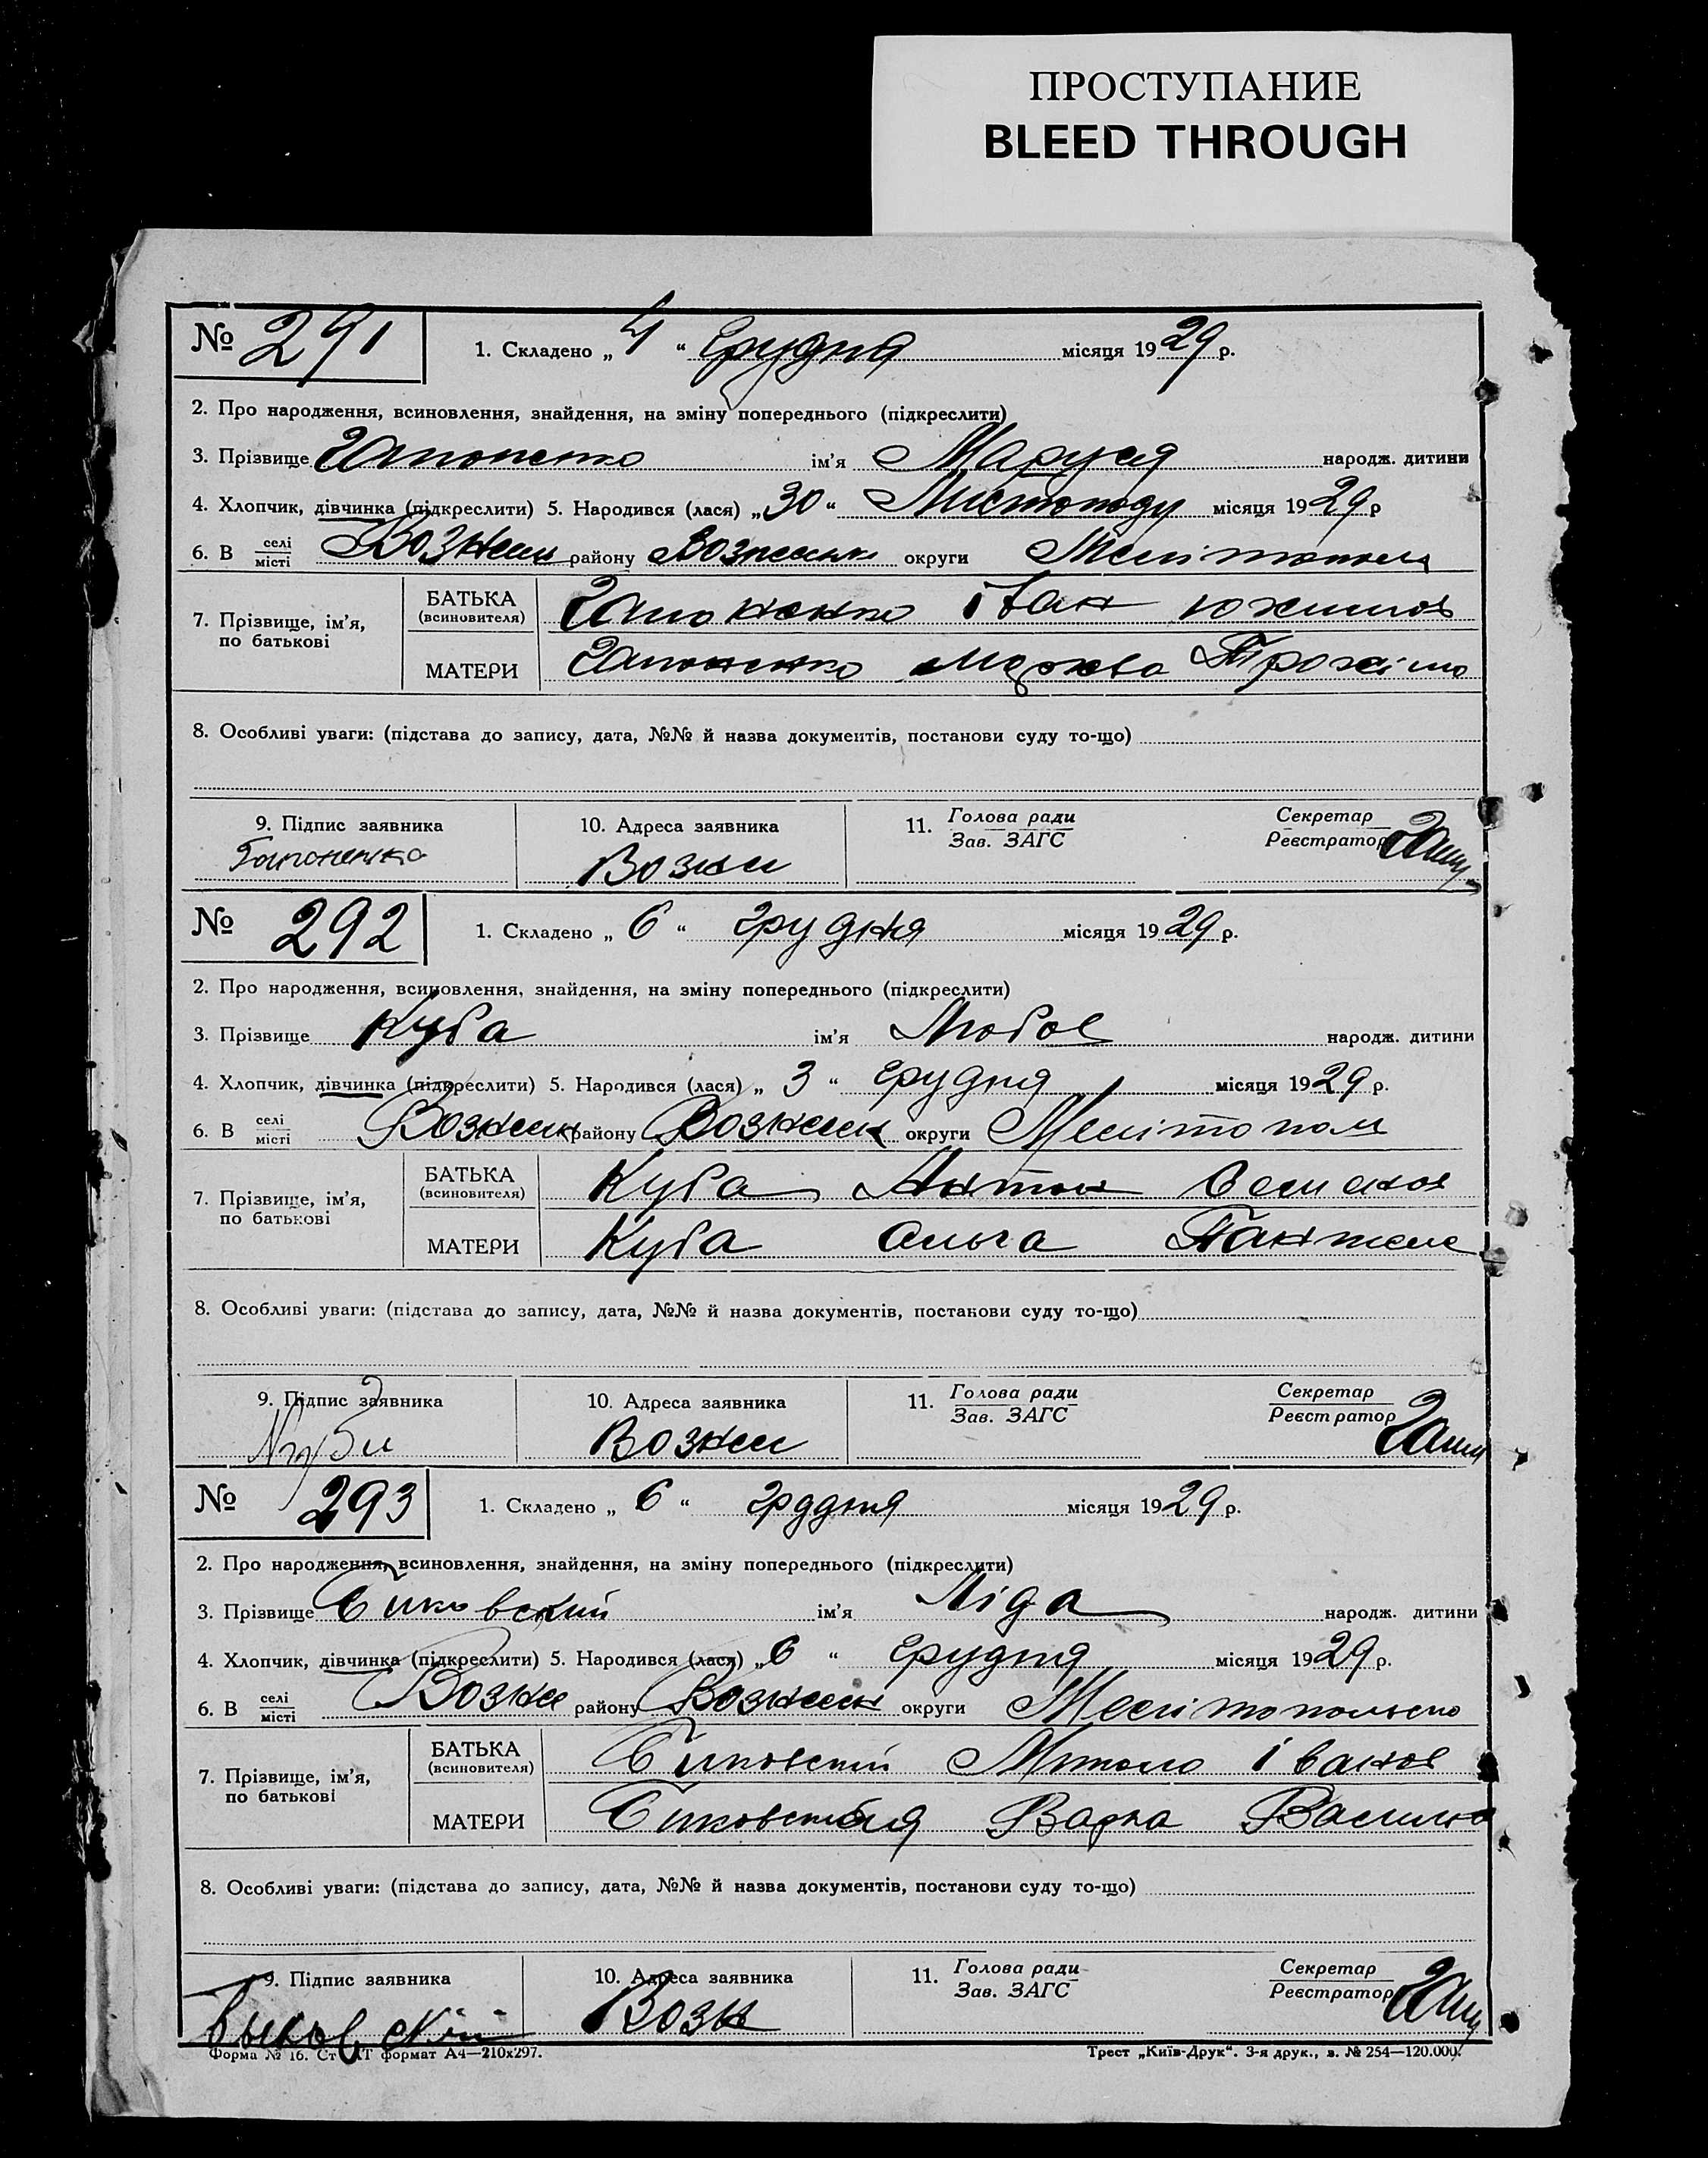 ПРОСТУПАНИЕ
BLEED THROUGH
№ 291 1. Складено „ 4 “ Грудня місяця 1929 р.
2. Про народження, всиновлення, знайдення, на зміну попереднього (підкреслити)
3. Прізвище Гапоненко ім’я Маруся народж. дитини
4. Хлопчик, дівчинка (підкреслити) 5. Народився (лася) „ 30 “ Листопаду місяця 1929 р
6. В селі місті району округи
7. Прізвище, ім’я, по батькові БАТЬКА (всиновителя) Гапоненко Іван
МАТЕРИ Гапоненко
8. Особливі уваги: (підстава до запису, дата, №№ й назва документів, постанови суду то-що)
9. Підпис заявника 10. Адреса заявника 11. Голова ради Зав. ЗАГС Секретар Реєстратор
Гапоненко Возни
№ 292 1. Складено „ 6 “ грудня місяця 1929 р.
2. Про народження, всиновлення, знайдення, на зміну попереднього (підкреслити)
3. Прізвище Куба ім’я Любов народж. дитини
4. Хлопчик, дівчинка (підкреслити) 5. Народився (лася) „ 3 “ грудня місяця 1929 р.
6. В селі місті району округи Мелітопол
7. Прізвище, ім’я, по батькові БАТЬКА (всиновителя) Куба Антон
МАТЕРИ Куба Ольга
8. Особливі уваги: (підстава до запису, дата, №№ й назва документів, постанови суду то-що)
9. Підпис заявника 10. Адреса заявника 11. Голова ради Зав. ЗАГС Секретар Реєстратор
№ 293 1. Складено „ 6 “ грудня місяця 1929 р.
2. Про народження, всиновлення, знайдення, на зміну попереднього (підкреслити)
3. Прізвище Биковский ім’я Ліда народж. дитини
4. Хлопчик, дівчинка (підкреслити) 5. Народився (лася) „ 6 “ грудня місяця 1929 р.
6. В селі місті району округи
7. Прізвище, ім’я, по батькові БАТЬКА (всиновителя) Биковский Іванов
МАТЕРИ Варка
8. Особливі уваги: (підстава до запису, дата, №№ й назва документів, постанови суду то-що)
9. Підпис заявника 10. Адреса заявника 11. Голова ради Зав. ЗАГС Секретар Реєстратор
Возн
Форма № 16. формат А4—210х297. Трест „Київ-Друк“. 3-я друк., з. № 254—120.000.